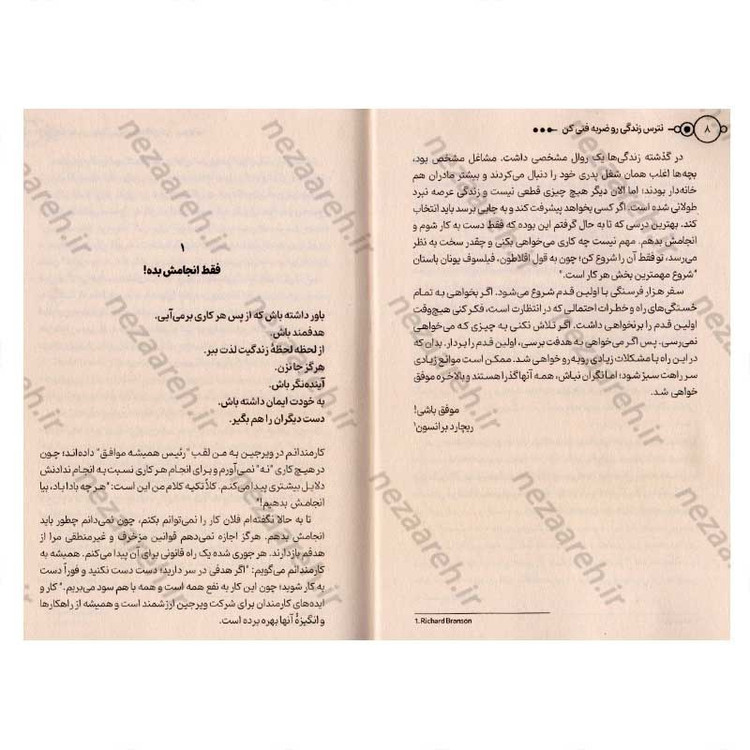 ۸
نترس زندگی رو ضربه فنی کن
در گذشته زندگی‌ها یک روال مشخصی داشت. مشاغل مشخص بود،
بچه‌ها اغلب همان شغل پدری خود را دنبال می‌کردند و بیشتر مادران هم
خانه‌دار بودند؛ اما الان دیگر هیچ چیزی قطعی نیست و زندگی عرصه نبرد
طولانی شده است. اگر کسی بخواهد پیشرفت کند و به جایی برسد باید انتخاب
کند. بهترین درسی که تا به حال گرفتم این بوده که فقط دست به کار شوم و
انجامش بدهم. مهم نیست چه کاری می‌خواهی بکنی و چقدر سخت به نظر
می‌رسد، تو فقط آن را شروع کن؛ چون به قول افلاطون، فیلسوف یونان باستان
"شروع مهمترین بخش هر کار است."
سفر هزار فرسنگی با اولین قدم شروع می‌شود. اگر بخواهی به تمام
خستگی‌های راه و خطرات احتمالی که در انتظارت است، فکر کنی هیچ‌وقت
اولین قدم را برنخواهی داشت. اگر تلاش نکنی به چیزی که می‌خواهی
نمی‌رسی. پس اگر می‌خواهی به هدفت برسی، اولین قدم را بردار. بدان که
در این راه با مشکلات زیادی روبه‌رو خواهی شد. ممکن است موانع زیادی
سر راهت سبز شود؛ اما نگران نباش، همه آنها گذرا هستند و بالاخره موفق
خواهی شد.
موفق باشی!
ریچارد برانسون۱
1. Richard Branson
۱
فقط انجامش بده!
باور داشته باش که از پس هر کاری برمی‌آیی.
هدفمند باش.
از لحظه لحظهٔ زندگیت لذت ببر.
هرگز جا نزن.
آینده‌نگر باش.
به خودت ایمان داشته باش.
دست دیگران را هم بگیر.
کارمندانم در ویرجین به من لقب "رئیس همیشه موافق" داده‌اند؛ چون
در هیچ کاری "نه" نمی‌آورم و برای انجام هر کاری نسبت به انجام ندادنش
دلایل بیشتری پیدا می‌کنم. کلاً تکیه کلام من این است: "هر چه باداباد، بیا
انجامش بدهیم!"
تا به حالا نگفته‌ام فلان کار را نمی‌توانم بکنم، چون نمی‌دانم چطور باید
انجامش بدهم. هرگز اجازه نمی‌دهم قوانین مزخرف و غیرمنطقی مرا از
هدفم بازدارند. هر جوری شده یک راه قانونی برای آن پیدا می‌کنم. همیشه به
کارمندانم می‌گویم: "اگر هدفی در سر دارید؛ دست دست نکنید و فوراً دست
به کار شوید؛ چون این کار به نفع همه است و همه با هم سود می‌بریم." کار و
ایده‌های کارمندان برای شرکت ویرجین ارزشمند است و همیشه از راهکارها
و انگیزهٔ آنها بهره برده است.
nezaareh.ir
nezaareh.ir
nezaareh.ir
nezaareh.ir
nezaareh.ir
nezaareh.ir
nezaareh.ir
nezaareh.ir
nezaareh.ir